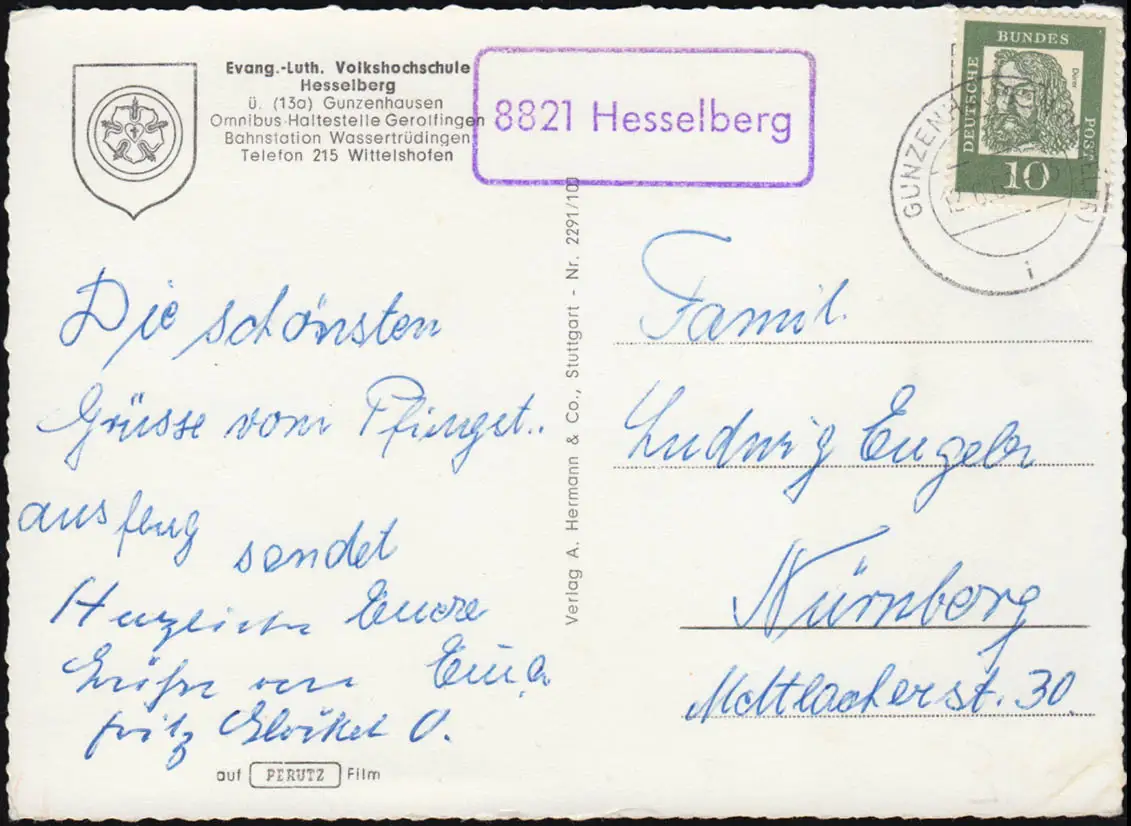 Evang.-Luth. Volkshochschule
Hesselberg
ü. (13a) Gunzenhausen
Omnibus-Haltestelle Gerolfingen
Bahnstation Wassertrüdingen
Telefon 215 Wittelshofen
8821 Hesselberg
DEUTSCHE BUNDES POST
Dürer
10
GUNZENHA
i
Die schönsten
Grüsse vom Pfingst..
ausflug sendet
Herzliche Euere
Grüße von
Fritz
auf PERUTZ Film
Verlag A. Hermann & Co., Stuttgart - Nr. 2291/100
Famil.
Ludwig
Nürnberg
Mettlacherst. 30.